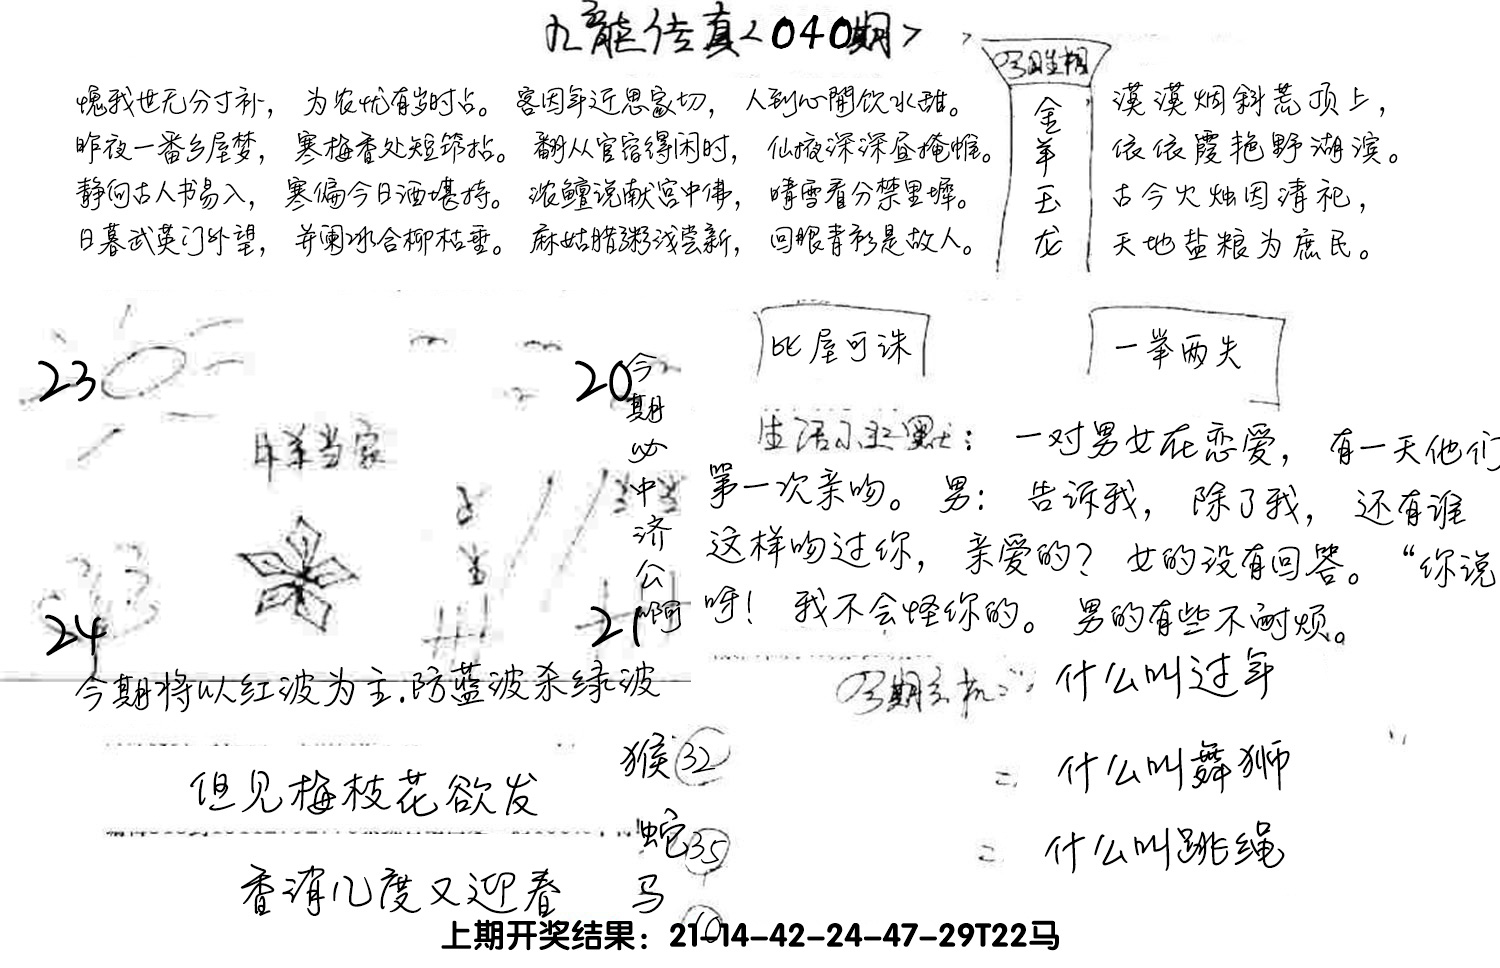 九龙传真<040期>
愧我世无分寸补，为农忧有当时占。客因年近思家切，人到心閒饮水甜。
昨夜一番乡屋梦，寒梅香处短筇拈。翻从官宿得闲时，仙掖深深昼掩帷。
静向古人书易入，寒偏今日酒堪持。浓鳣说献宫中佛，晴雪看分禁里墀。
日暮武英门外望，井阑冰合柳枯垂。麻姑腊粥浅尝新，回眼青衫是故人。
今期生相
金羊玉龙
漠漠烟斜荒顶上，
依依霞艳野湖滨。
古今火烛因清祀，
天地盐粮为庶民。
比屋可诛
一举两失
23
20
24
21
今期必中济公啊
羊当家
今期将以红波为主.防蓝波杀绿波
生活小幽默：一对男女在恋爱，有一天他们
第一次亲吻。男：告诉我，除了我，还有谁
这样吻过你，亲爱的？女的没有回答。“你说
呀！我不会怪你的。男的有些不耐烦。
今期玄机：什么叫过年
什么叫舞狮
什么叫跳绳
但见梅枝花欲发
香消几度又迎春
猴 32
蛇 35
马 10
上期开奖结果：21-14-42-24-47-29T22马